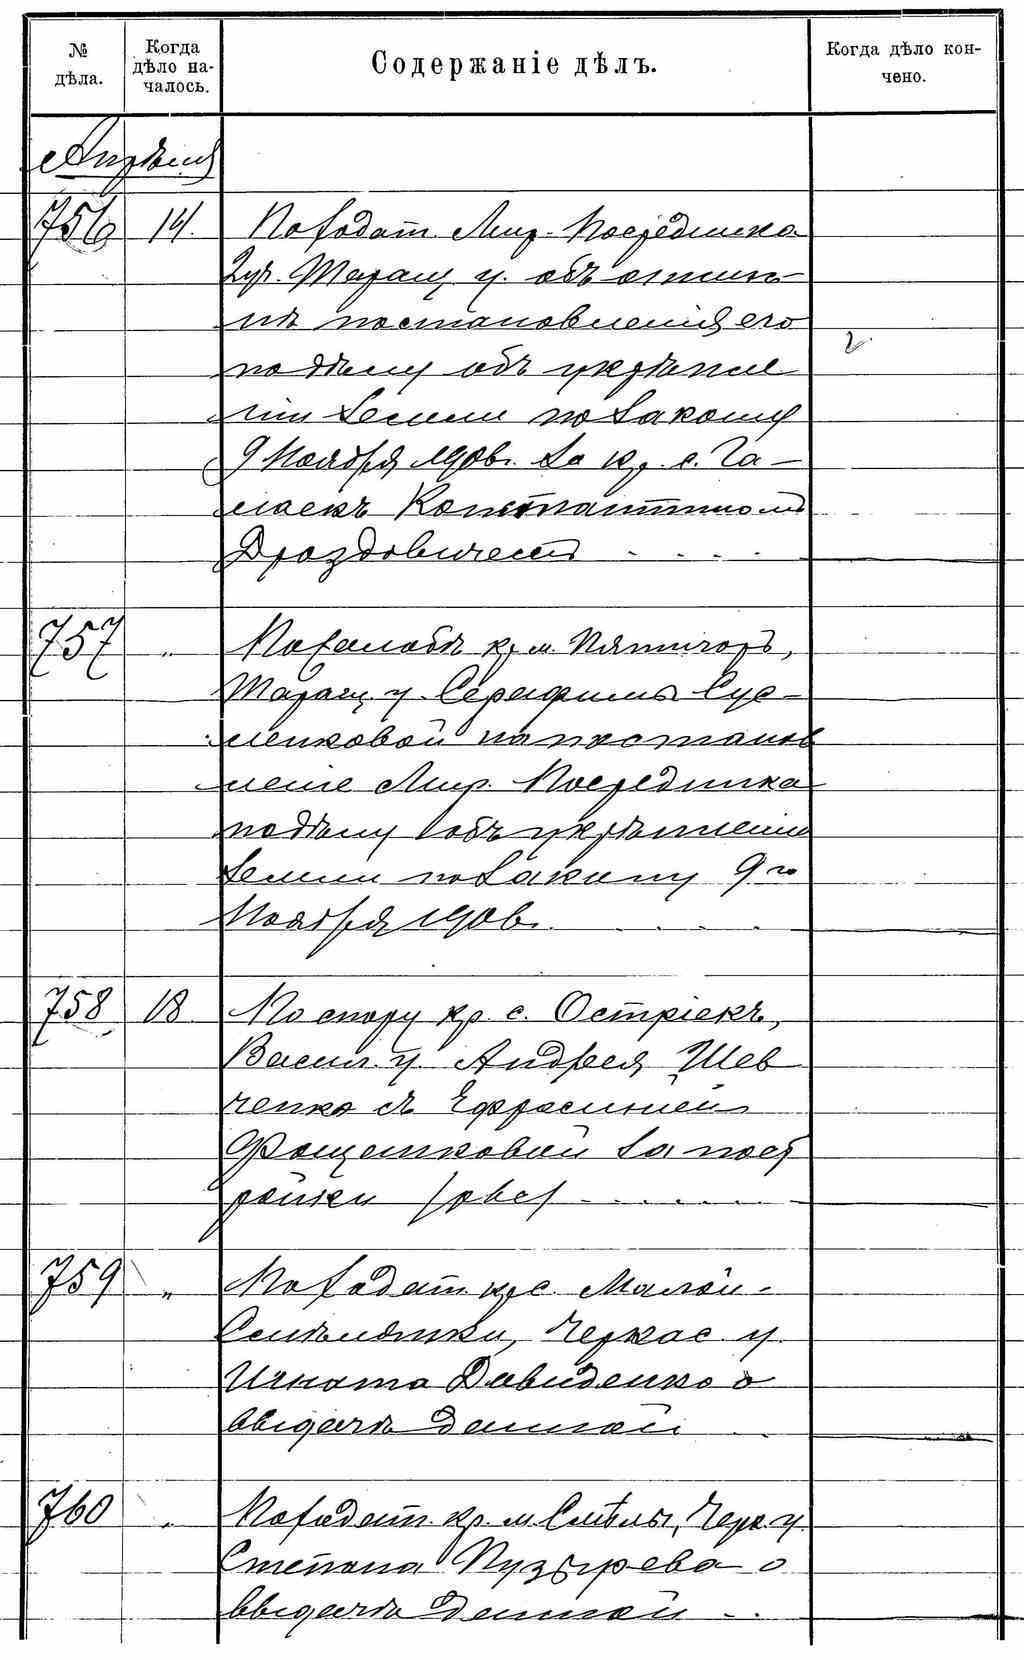 № дѣла.
Когда дѣло началось.
Содержаніе дѣлъ.
Когда дѣло кончено.
Апрѣля
756 14. По ходат. Мир. Посредника
2 уч. Таращ. у. объ отмѣ-
нѣ постановленія его
по дѣлу объ укрѣпле
ніи земли по закону
9 Ноября 1906 г. за кр. с.
Константиномъ
Дроздовичемъ . . . .
757 " По жалобѣ кр. м. Пятигоръ,
Таращ. у. Серафимы Сус-
менковой на постанов
леніе Мир. Посредника
по дѣлу объ укрѣпленіи
земли по закону 9 го
Ноября 1906 г. . . . .
758 18. По спору кр. с. Острiекъ,
Васил. у. Андрея Шев
ченко съ Ефросиніей
Фощенковой за пост
ройки
759 " По ходат. кр. с. Малой-
Смѣлянки, Черкас. у.
Игната Давиденко о
выдачѣ данной
760 " По ходат. кр. м. Смѣлы, Черк. у.
Степана Пузырева о
выдачѣ данной . .